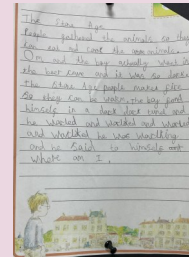 The Stone Age
People gathered the animals so they
can eat and cook the animals.
Om and the boy actually went in
the best cave and it was so dark.
the Stone Age people makes fire
So they can be warm, the boy found
himself in a dark dark cave and
he worked and walked and worked
and walked he was
and he said to himself
where am I,